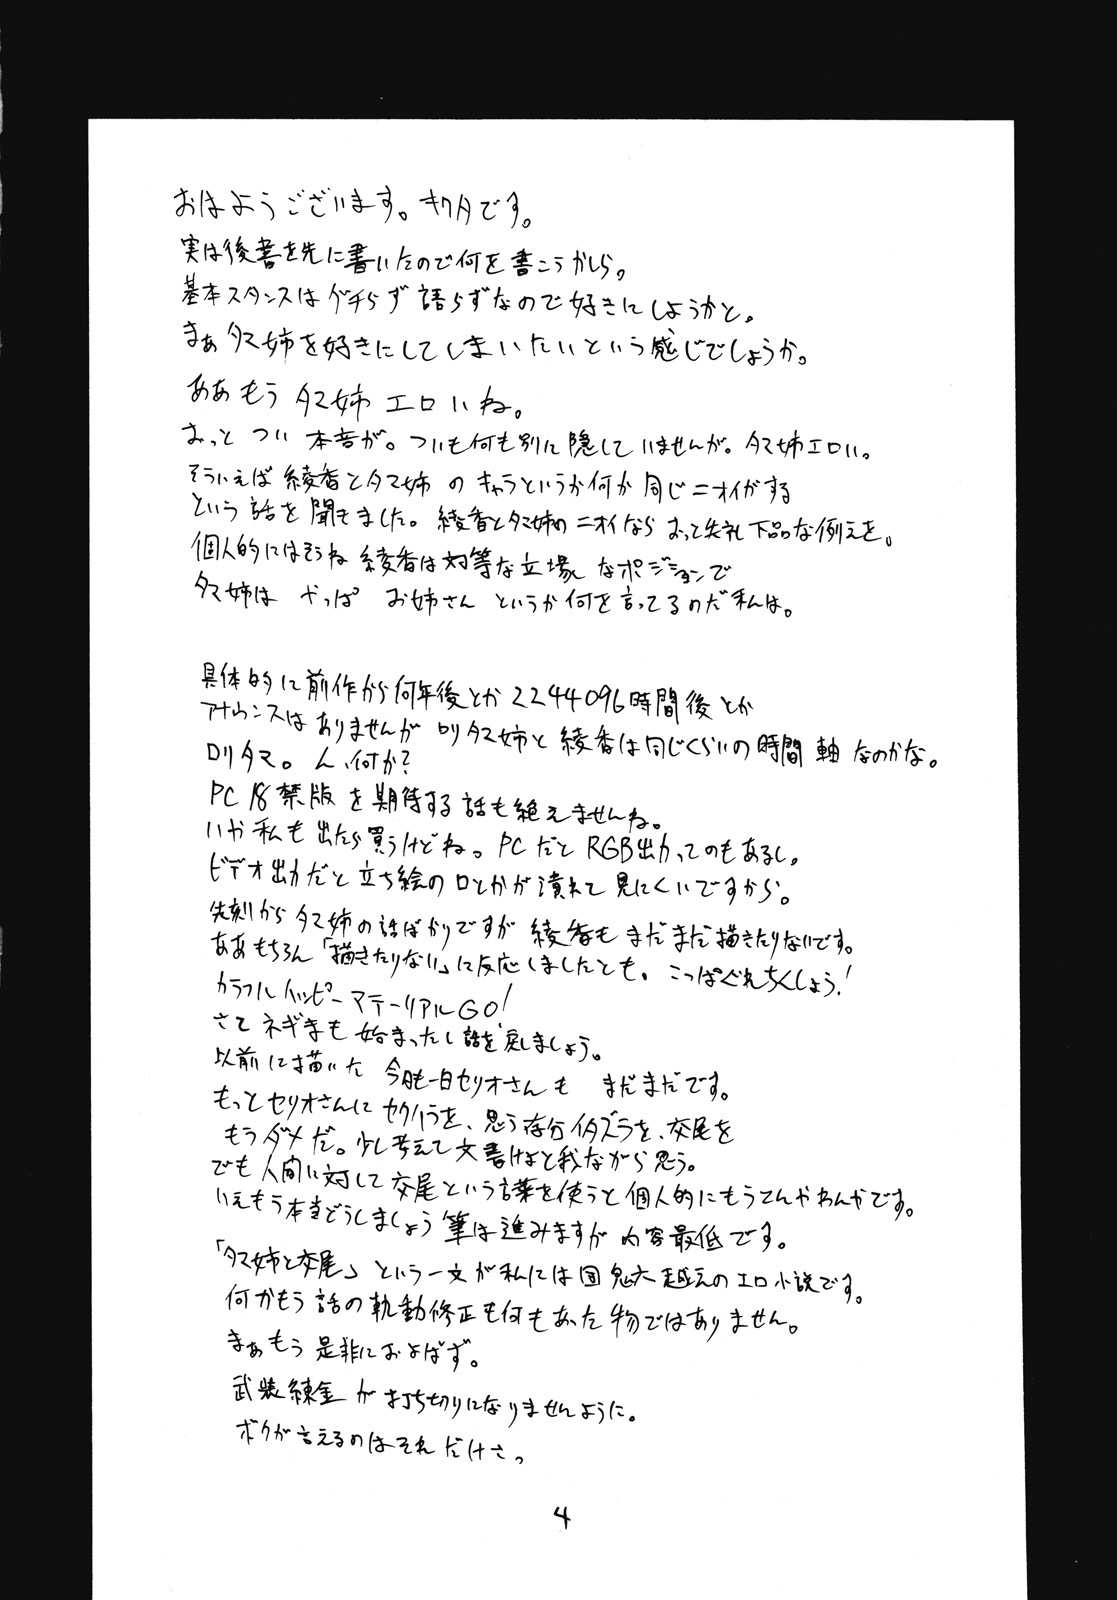 おはようございます。キクタです。
実は後書を先に書いたので何を書こうかしら。
基本スタンスはグチらず語らずなので好きにしようかと。
まぁタマ姉を好きにしてしまいたいという感じでしょうか。
ああもうタマ姉エロいね。
おっとつい本音が。ついも何も別に隠していませんが。タマ姉エロい。
そういえば綾香とタマ姉のキャラというか何か同じニオイがする
という話を聞きました。綾香とタマ姉のニオイならおっと失礼下品な例えを。
個人的にはそうね綾香は対等な立場なポジションで
タマ姉はやっぱお姉さんというか何を言ってるのだ私は。
具体的に前作から何年後とか2244096時間後とか
アナウンスはありませんがロリタマ姉と綾香は同じくらいの時間軸なのかな。
ロリタマ。ん、何か?
PC18禁版を期待する話も絶えませんね。
いや私も出たら買うけどね。PCだとRGB出力ってのもあるし。
ビデオ出力だと立ち絵の口とかが潰れて見にくいですから。
先刻からタマ姉の話ばかりですが綾香もまだまだ描きたりないです。
ああもちろん「描きたりない」に反応しましたとも。こっぱぐれちくしょう!
カラフルハッピーマテーリアルGO!
さてネギまも始まったし話を戻しましょう。
以前に描いた今日も一日セリオさんもまだまだです。
もっとセリオさんにセクハラを、思う存分イタズラを、交尾を
もうダメだ。少し考えて文書けよと我ながら思う。
でも人間に対して交尾という言葉を使うと個人的にもうてんやわんやです。
いえもう本当どうしましょう筆は進みますが内容最低です。
「タマ姉と交尾」という一文が私には団鬼六越えのエロ小説です。
何かもう話の軌動修正も何もあった物ではありません。
まぁもう是非におよばず。
武装錬金が打ち切りになりませんように。
ボクが言えるのはそれだけさ。
4